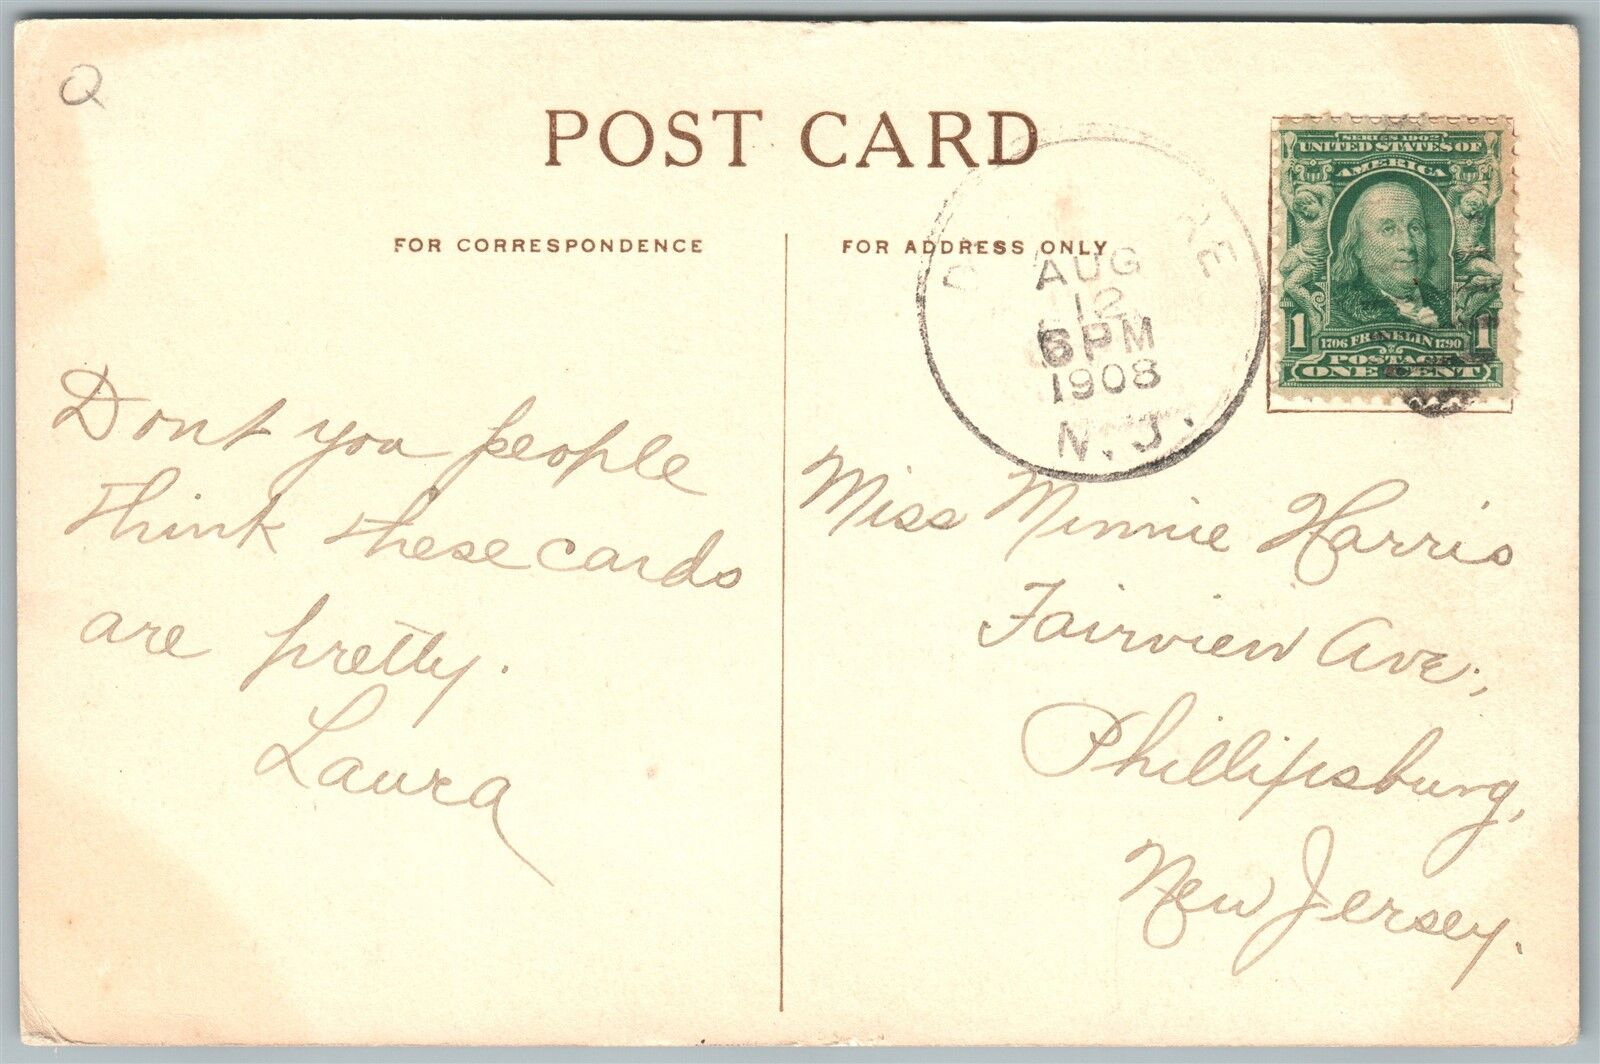 Q
POST CARD
FOR CORRESPONDENCE
FOR ADDRESS ONLY
AUG
12
6 PM
1908
N.J.
SERIES 1902
UNITED STATES OF
AMERICA
1 1
1706 FRANKLIN 1790
POSTAGE
ONE CENT
Dont you people
think these cards
are pretty.
Laura
Miss Minnie Harris
Fairview Ave.,
Phillipsburg,
New Jersey.